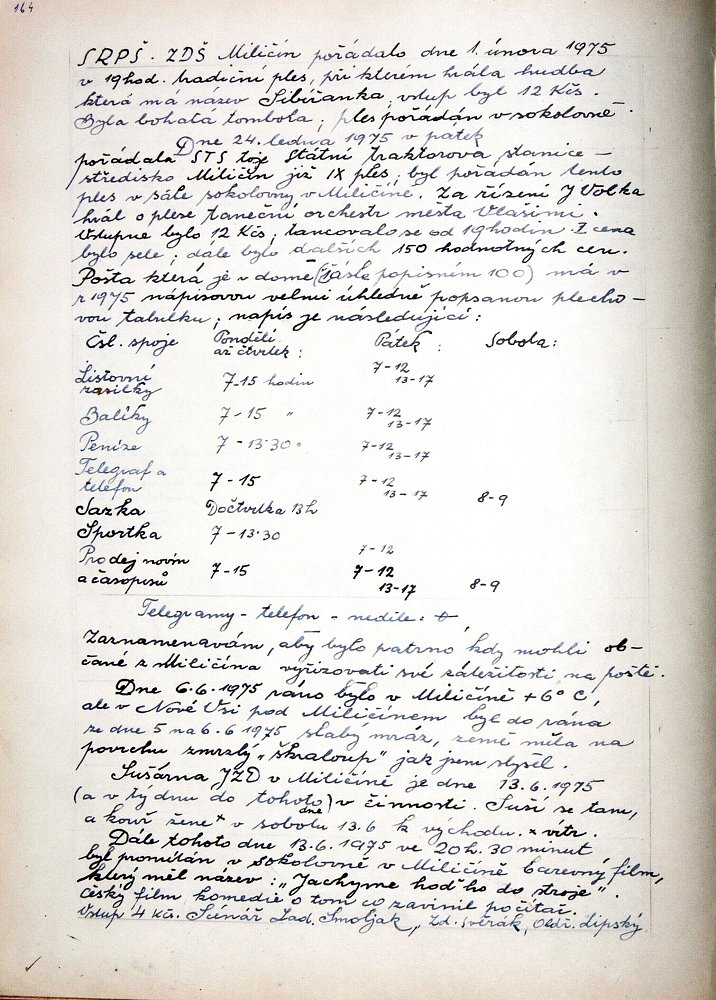 164
SRPŠ - ZDŠ Miličín pořádalo dne 1. února 1975
v 19hod. tradiční ples, při kterém hrála hudba
která má název Sibiřanka, vstup byl 12 Kčs.
Byla bohatá tombola; ples pořádán v sokolovně.
Dne 24. ledna 1975 v pátek
pořádala STS toje Státní traktorová stanice -
středisko Miličín již IX ples; byl pořádán tento
ples v sále sokolovny v Miličíně. Za řízení J Volka
hrál o plese taneční orchestr města Vlašimi.
Vstupné bylo 12 Kčs; tancovalo se od 19hodin. I cena
bylo sele; dále bylo dalších 150 hodnotných cen.
Pošta která je v domě (čísle popisném 100) má v
r 1975 nápisovou velmi úhledně popsanou plecho-
vou tabulku; nápis je následující:
Čsl. spoje Pondělí až čtvrtek: Pátek: Sobota:
Listovní zásilky 7-15 hodin 7-12 13-17
Balíky 7-15 " 7-12 13-17
Peníze 7-13·30 " 7-12 13-17
Telegraf a telefon 7-15 7-12 13-17 8-9
Sazka Dočtvrtka 13h
Sportka 7-13·30
7-12
Prodej novin a časopisů 7-15 7-12 13-17 8-9
Telegramy - telefon - neděle:
Zaznamenávám, aby bylo patrno kdy mohli ob-
čané z Miličína vyřizovati své záležitosti na poště.
Dne 6.6.1975 ráno bylo v Miličíně +6° C,
ale v Nové Vsi pod Miličínem byl do rána
ze dne 5 na 6.6 1975 slabý mráz, země měla na
povrchu zmrzlý „škraloup" jak jsem slyšel.
Sušárna JZD v Miličíně je dne 13.6.1975
(a v týdnu do tohoto dne) v činnosti. Suší se tam,
a kouř žene x v sobotu 13.6 k východu. x vítr.
Dále tohoto dne 13.6.1975 ve 20h. 30 minut
byl promítán v sokolovně v Miličíně barevný film,
který měl název: „Jáchyme hoď ho do stroje".
Český film komedie o tom co zavinil počítač.
Vstup 4 Kčs. Scénář Lad. Smoljak, Zd. Svěrák, Oldř. Lipský.